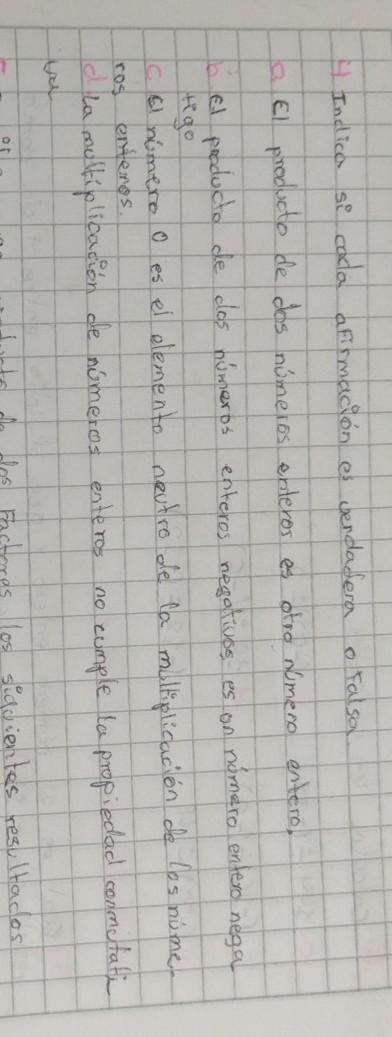 4 Indica si cada afirmación es verdadera o Falsa.
a El producto de dos números enteros es otro número entero.
b El producto de dos números enteros negativos es un número entero nega
tigo
c El número 0 es el elemento neutro de la multiplicación de los núme-
ros enteros.
d La multiplicación de números enteros no cumple la propiedad conmutati
va
de dos Factores los siguientes resultados